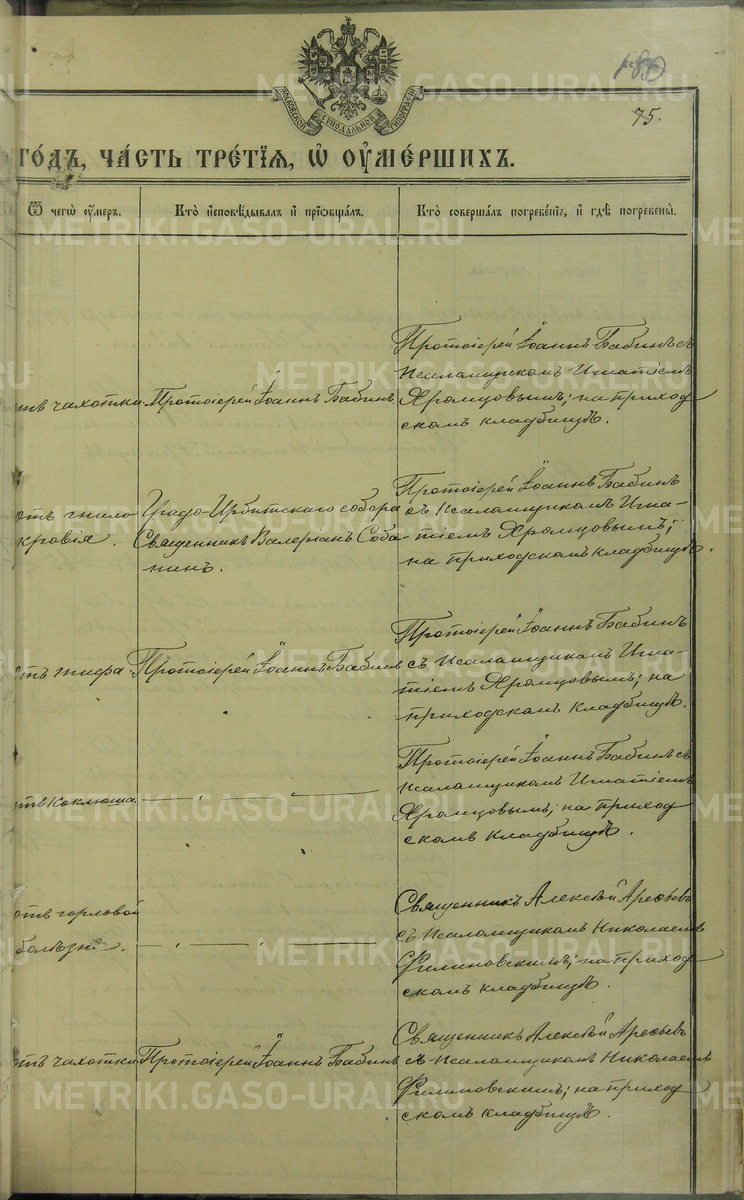 75.
МОСКОВСКОЙ СѴНОДАЛЬНОЙ ТИПОГРАФІИ
ГО́ДЪ, ЧА́СТЬ ТРЕ́ТІѦ, Ѽ ОУ҆МЕ́РШИХЪ.
Ѿ чегѡ̀ оу҆́меръ.
Кто̀ и҆сповѣ́дывалъ и҆ прїѡбща́лъ.
Кто̀ соверша́лъ погребе́нїе, и҆ гдѣ̀ погребены̀.
отъ чахотки.
Протоіерей Іоаннъ Бабинъ
Протоіерей Іоаннъ Бабинъ съ
псаломщикомъ Игнатіемъ
Яромцовымъ; на приход
скомъ кладбищѣ.
отъ гнило
кровія.
Градо-Ирбитскаго собора
Священникъ Валеріанъ Соба
нинъ.
Протоіерей Іоаннъ Бабинъ
съ псаломщикомъ Игна-
тіемъ Яромцовымъ;
на приходскомъ кладбищѣ.
отъ тифа.
Протоіерей Іоаннъ Бабинъ
Протоіерей Іоаннъ Бабинъ
съ псаломщикомъ Игна-
тіемъ Яромцовымъ; на
приходскомъ кладбищѣ.
отъ коклюша.
Протоіерей Іоаннъ Бабинъ съ
псаломщикомъ Игнатіемъ
Яромцовымъ; на приход
скомъ кладбищѣ.
отъ горловой
болѣзни.
Священникъ Алексѣй Арефьевъ
съ псаломщикомъ Николаемъ
Филиповскимъ; на приход
скомъ кладбищѣ.
отъ чахотки
Протоіерей Іоаннъ Бабинъ
Священникъ Алексѣй Арефьевъ
съ псаломщикомъ Николаемъ
Филиповскимъ; на приход
скомъ кладбищѣ.
METRIKI.GASO-URAL.RU